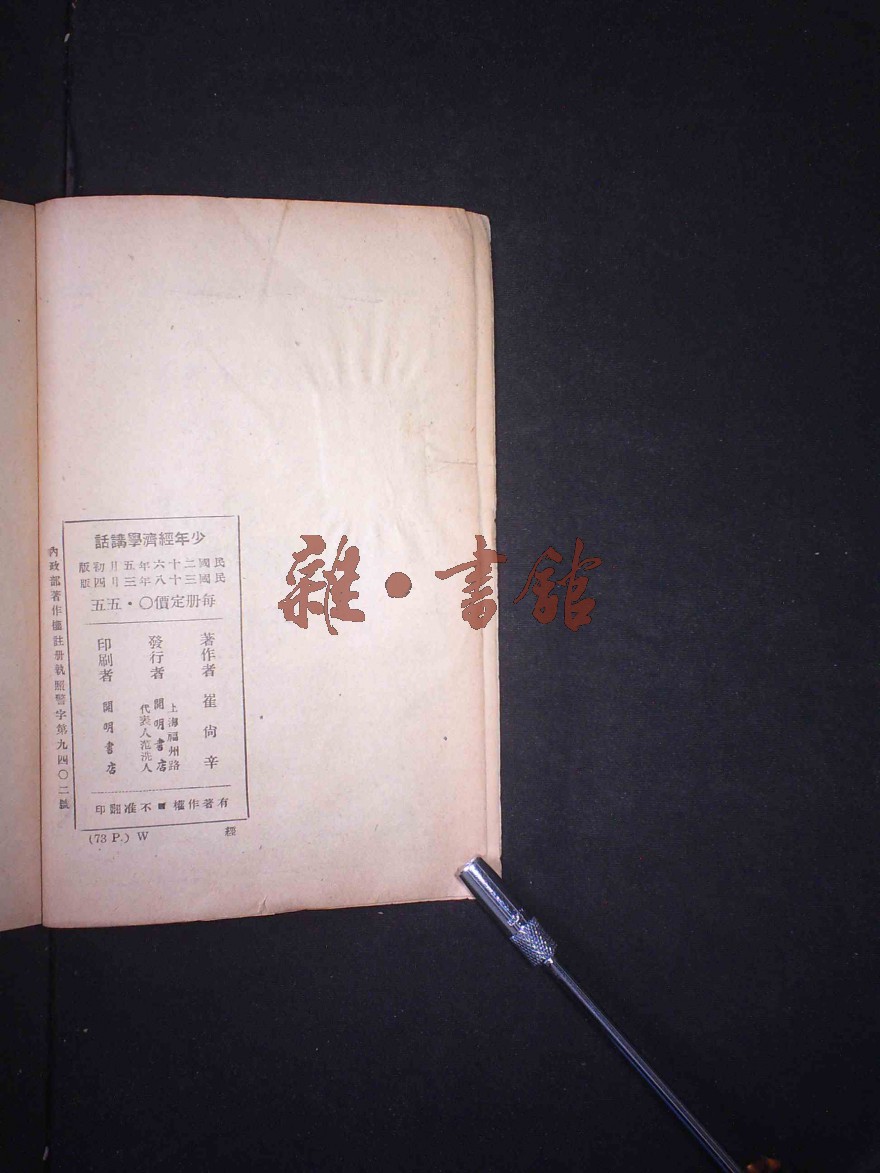 少年經濟學講話
民國二十六年五月初版
民國三十八年三月四版
每册定價〇·五五
著作者 崔尙辛
發行者 上海福州路
開明書店
代表人范洗人
印刷者 開明書店
有著作權■不准翻印
內政部著作權註册執照警字第九四〇二號
(73 P.) W
雜·書館